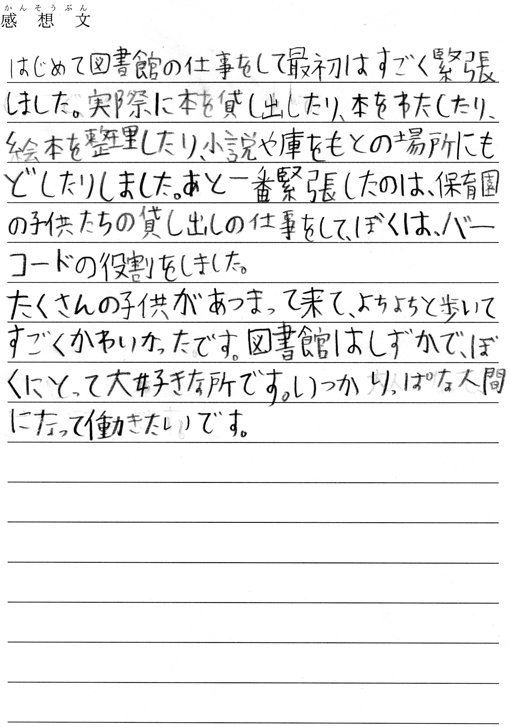 かんそうぶん
感想文
はじめて図書館の仕事をして最初はすごく緊張
しました。実際に本を貸し出したり、本をわたしたり、
絵本を整理したり、小説や庫をもとの場所にも
どしたりしました。あと一番緊張したのは、保育園
の子供たちの貸し出しの仕事をして、ぼくは、バー
コードの役割をしました。
たくさんの子供があつまって来て、よちよちと歩いて
すごくかわいかったです。図書館はしずかで、ぼ
くにとって大好きな所です。いつかりっぱな人間
になって働きたいです。